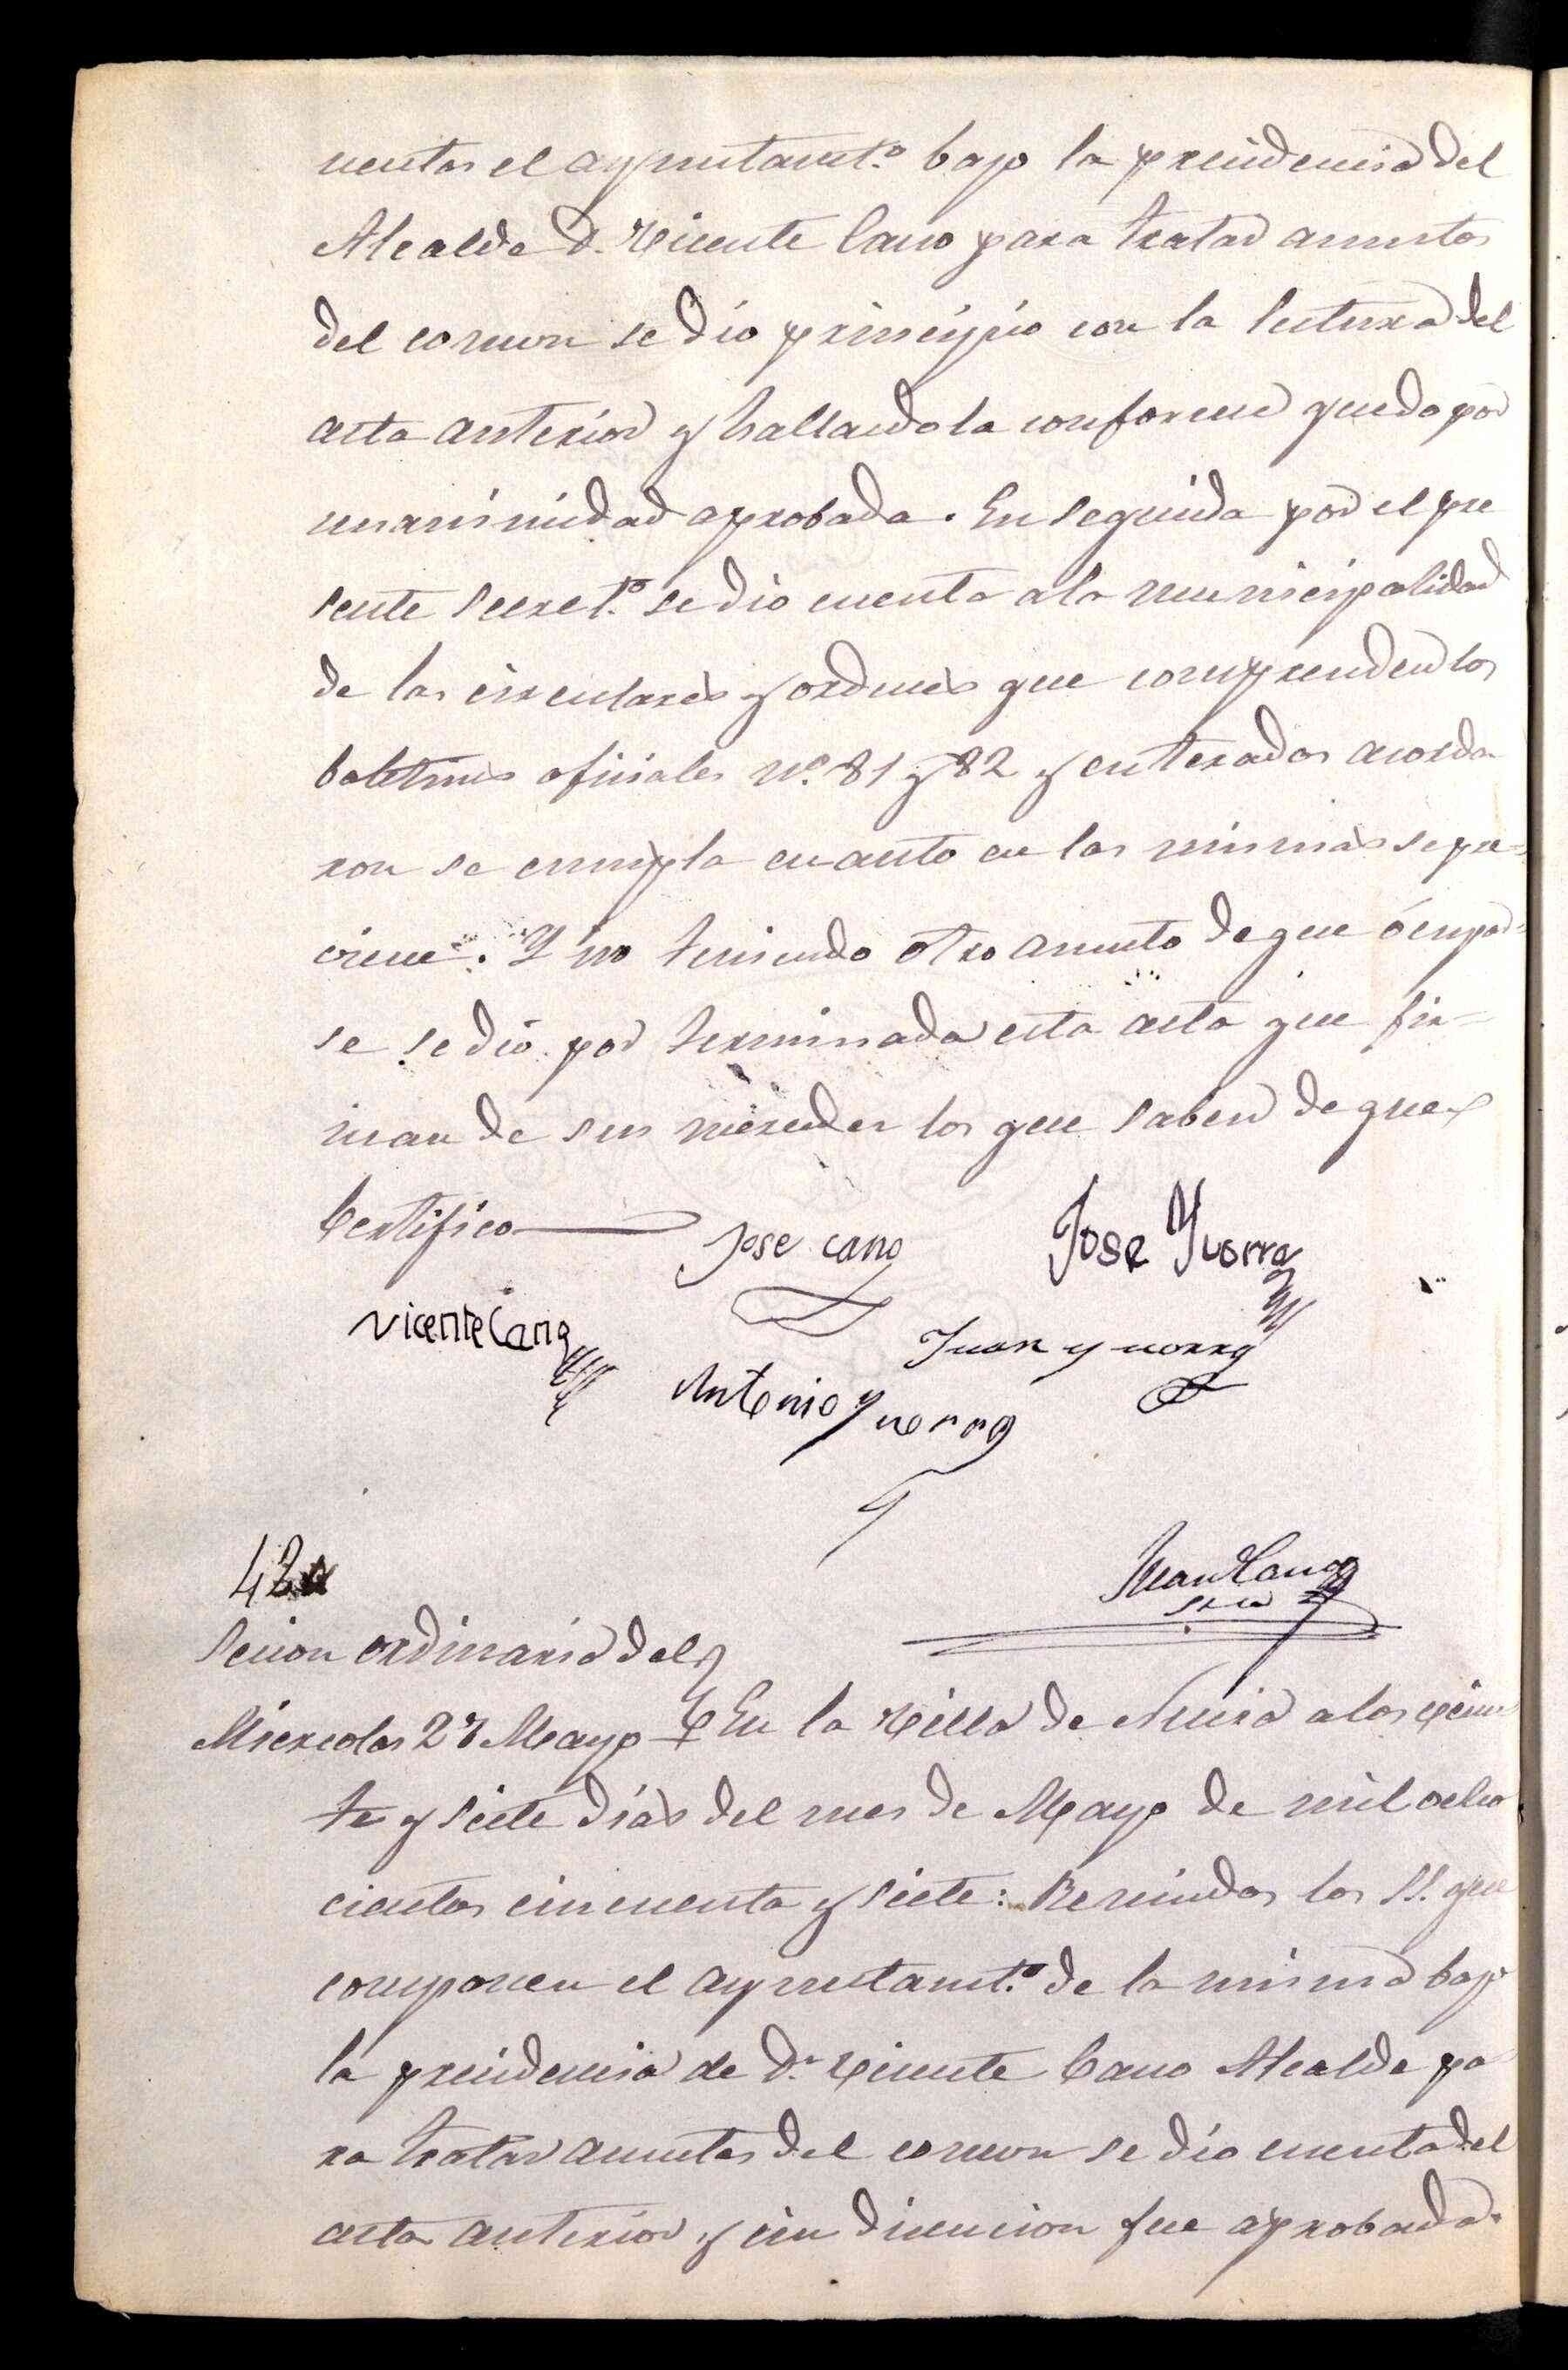 nentes el ayuntamt.º bajo la presidencia del
Alcalde D. Vicente Cano para tratar asuntos
del comun se dio principio con la lectura del
acta anterior y hallandola conforme quedo por
unanimidad aprobada. En seguida por el pre
sente Secret.º se dio cuenta a la municipalidad
de las circulares y ordenes que comprenden los
boletines oficiales nº. 81 y 82 y enterados acorda
ron se cumpla cuanto en las mismas se pre=
viene. Y no teniendo otro asunto de que ócupar=
se se dió por terminada esta acta que fir=
man de sus mercedes los que saben de que
Certifico
Jose cano
Jose Yvorra
Vicente Cano
Juan yvorra
Antonio Yvorra
Juan Cano
Srio
42
Secion ordinaria del
Miercoles 27 Mayo
En la Villa de Nucia a los vein
te y siete días del mes de Mayo de mil ocho
cientos cincuenta y siete: Reunidos los SS. que
componen el ayuntamt.º de la misma bajo
la presidencia de D.n Vicente Cano Alcalde pa
ra tratar asuntos del comun se dio cuenta del
acta anterior y sin discucion fue aprobada.